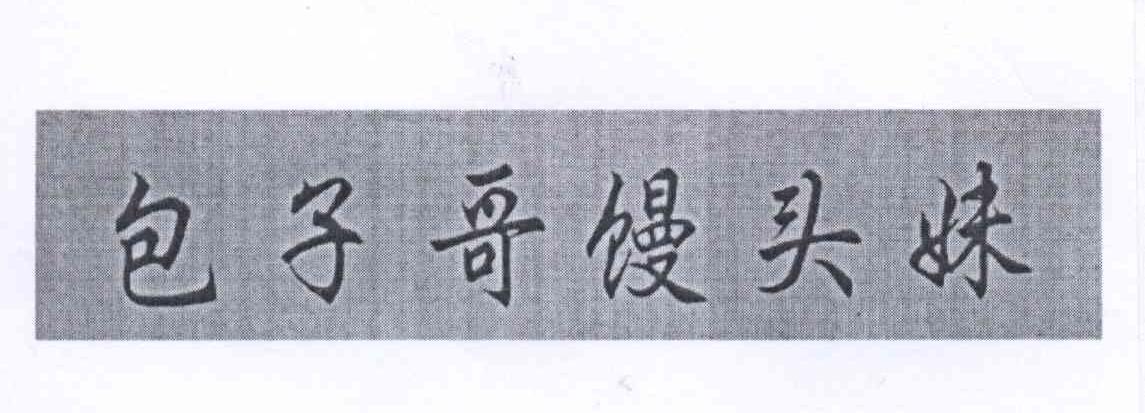 包子哥馒头妹